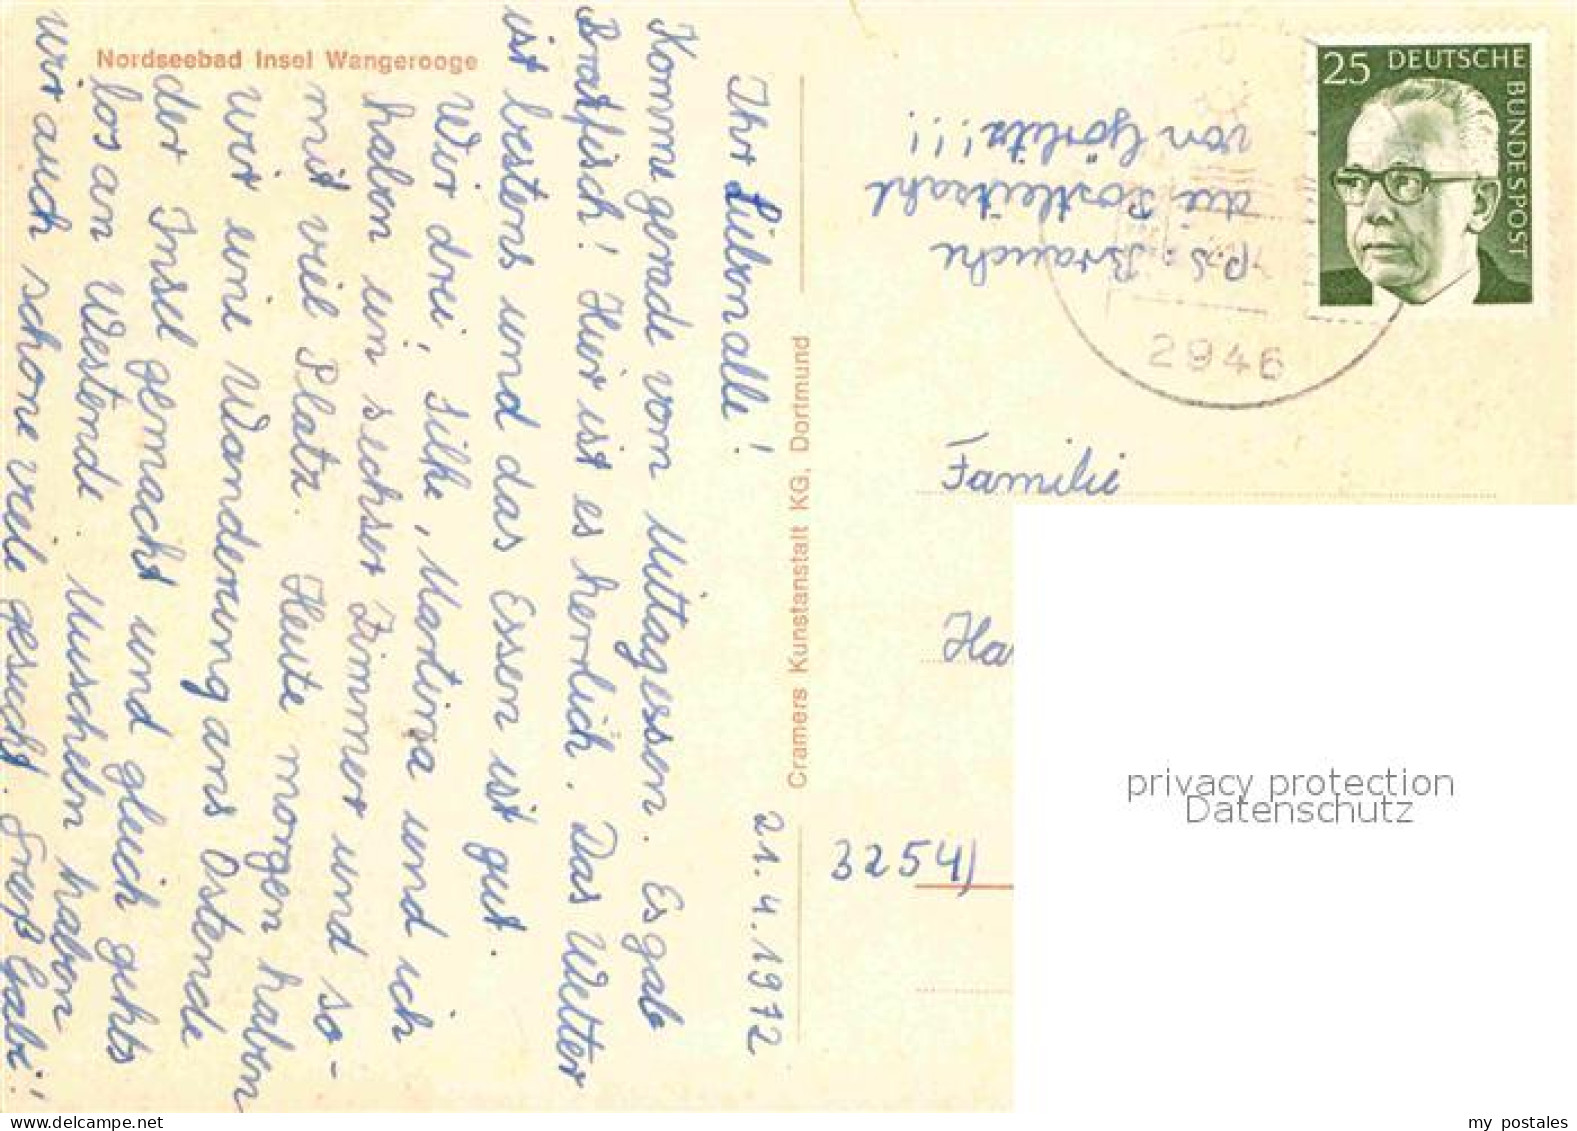 Nordseebad Insel Wangerooge
21.4.1972
Ihr Lieben alle!
Komme gerade vom Mittagessen. Es gab
Bratfisch! Hier ist es herrlich. Das Wetter
ist bestens und das Essen ist gut.
Wir drei, Silke, Martina und ich
haben ein sechser Zimmer und so-
mit viel Platz. Heute morgen haben
wir eine Wanderung ans Ostende
der Insel gemacht und gleich gehts
los am Westende. Muscheln haben
wir auch schone viele gesucht. Gruß Gabi!
Cramers Kunstanstalt KG, Dortmund
P.S: Brauche
die Postleitzahl
von Görlitz!!!
25 DEUTSCHE
BUNDESPOST
2946
Familie
Ha
3254)
privacy protection
Datenschutz
my postales